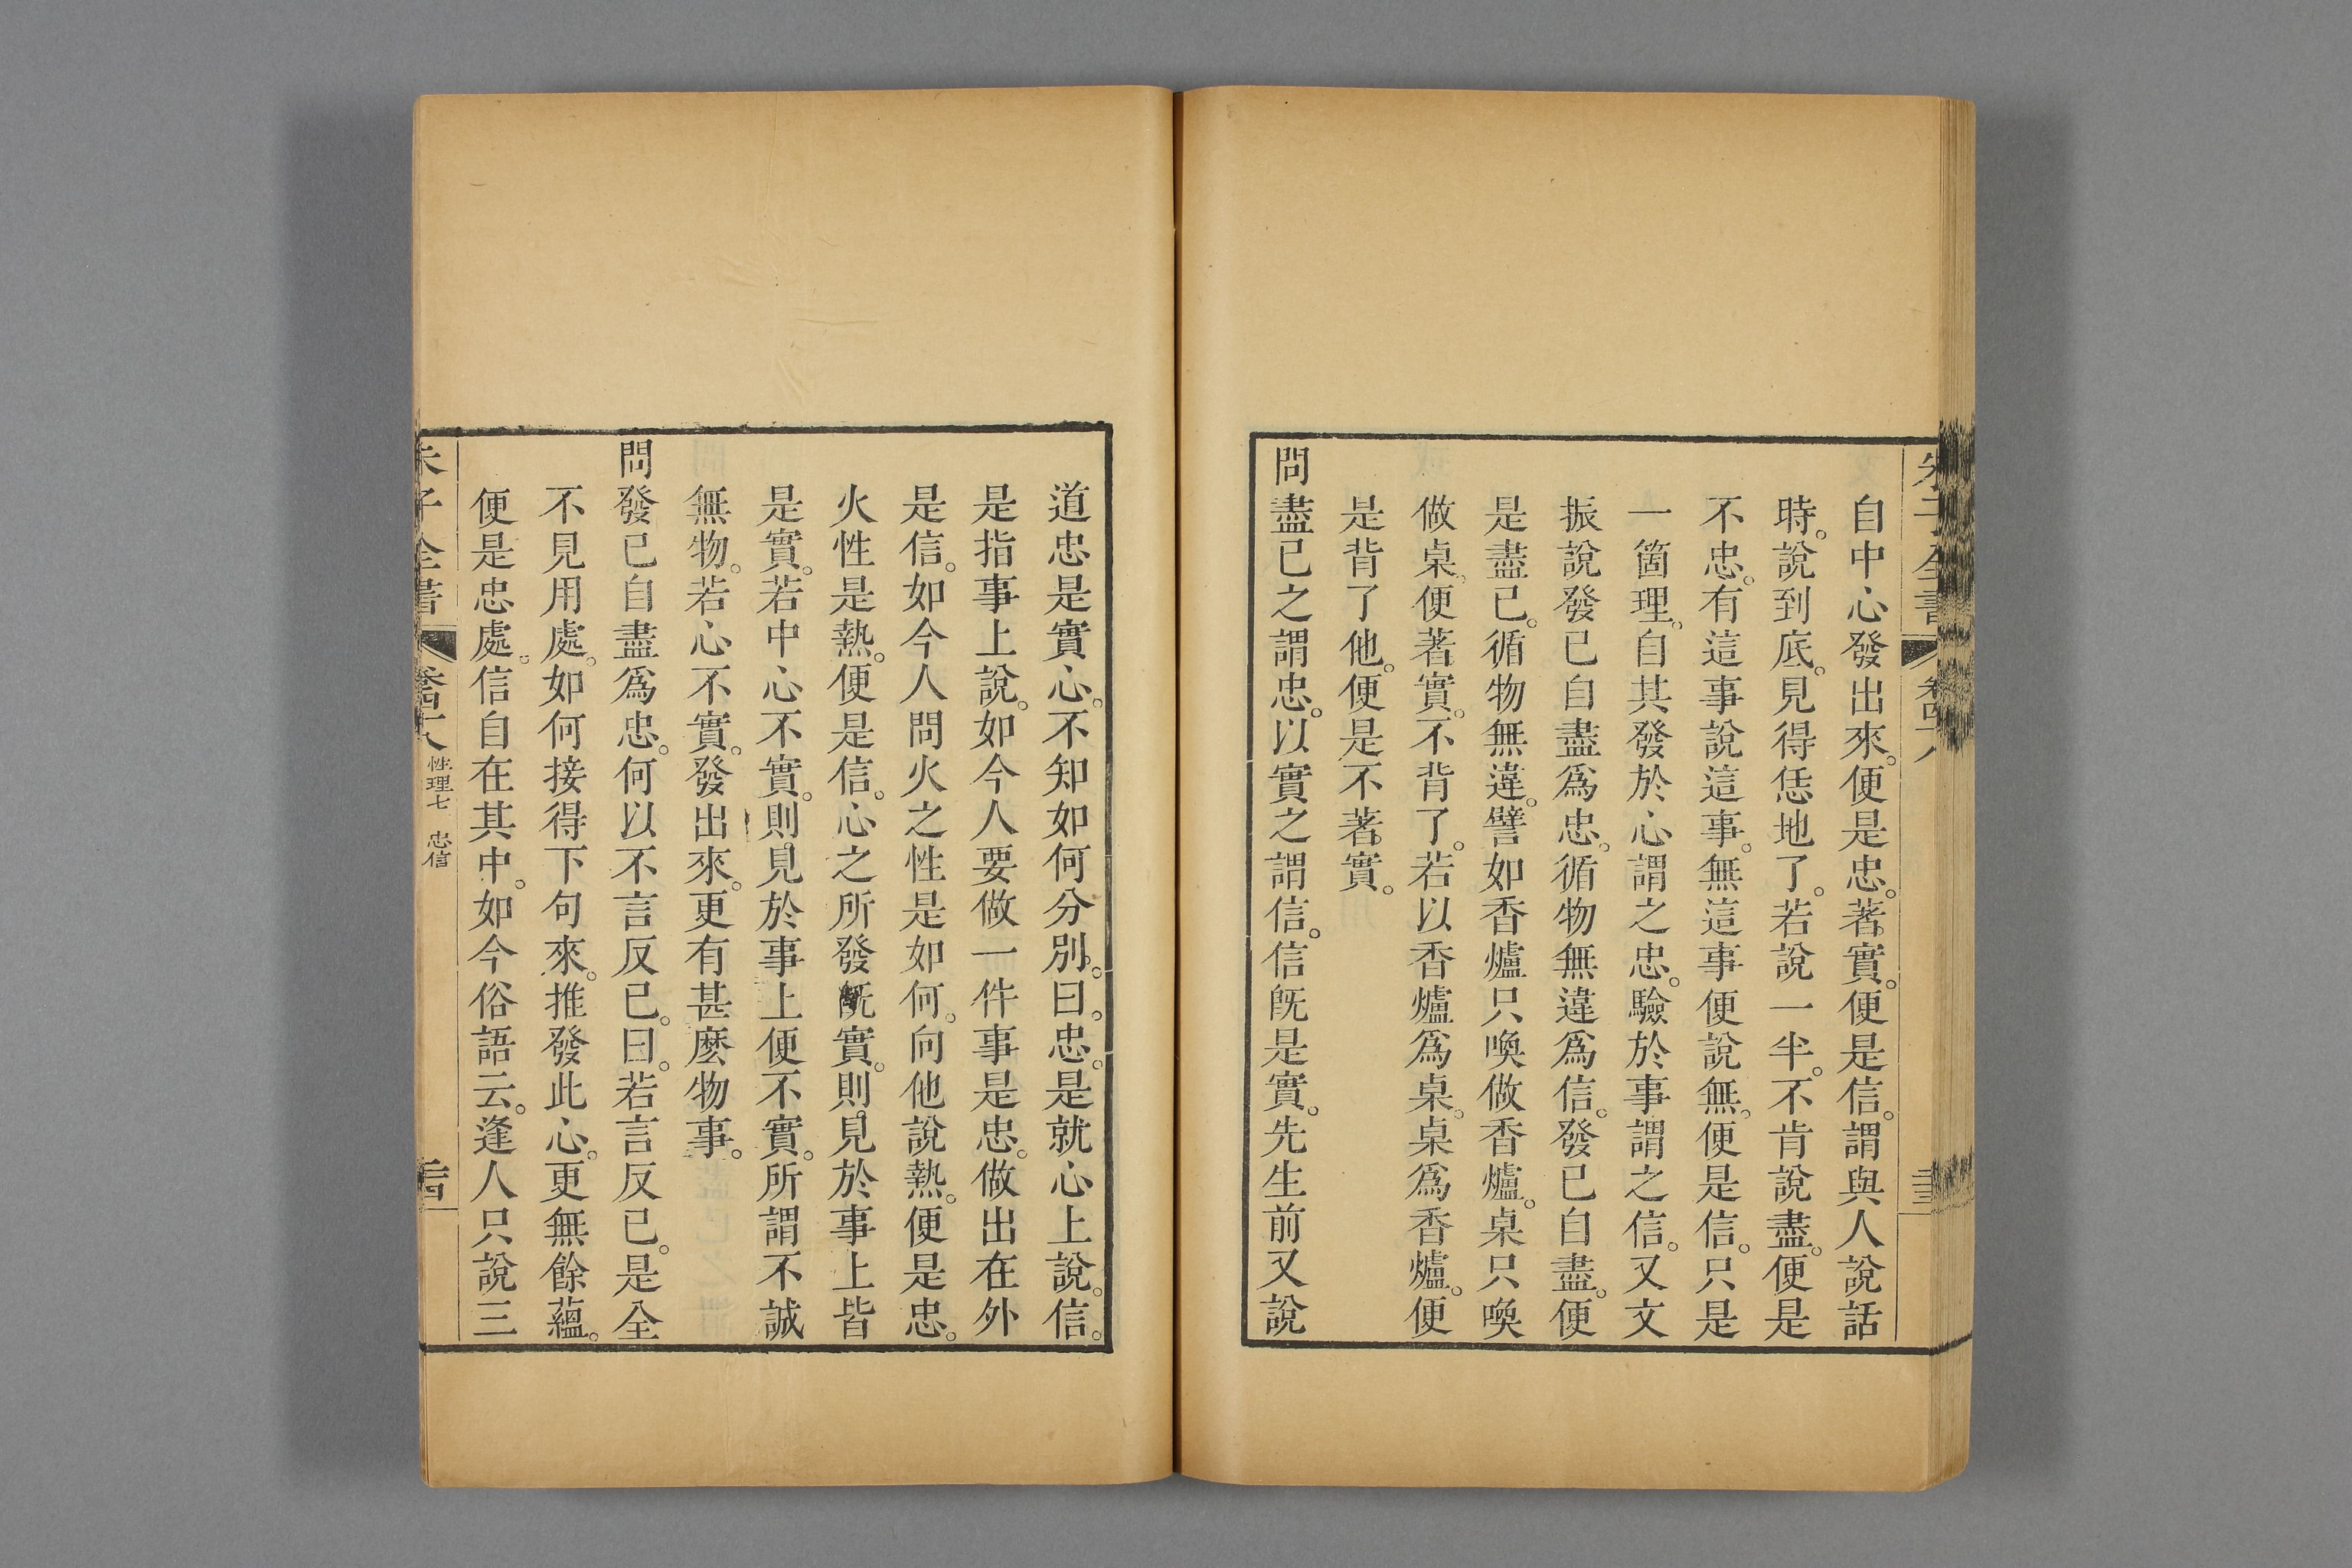 自中心發出來。便是忠。著實。便是信。謂與人說話
時。說到底。見得恁地了。若說一半。不肯說盡。便是
不忠。有這事說這事。無這事便說無。便是信。只是
一箇理。自其發於心謂之忠。驗於事謂之信。又文
振說發已自盡爲忠。循物無違爲信。發已自盡。便
是盡已。循物無違。譬如香爐只喚做香爐。桌只喚
做桌。便著實。不背了。若以香爐爲桌。桌爲香爐。便
是背了他。便是不著實。
問盡已之謂忠。以實之謂信。信旣是實。先生前又說
道忠是實心。不知如何分別。曰。忠。是就心上說。信。
是指事上說。如今人要做一件事是忠。做出在外
是信。如今人問火之性是如何。向他說熱。便是忠。
火性是熱。便是信。心之所發旣實。則見於事上皆
是實。若中心不實。則見於事上便不實。所謂不誠
無物。若心不實。發出來。更有甚麽物事。
問發已自盡爲忠。何以不言反已。曰。若言反已。是全
不見用處。如何接得下句來。推發此心。更無餘蘊。
便是忠處。信自在其中。如今俗語云。逢人只說三
朱子全書
性理七 忠信